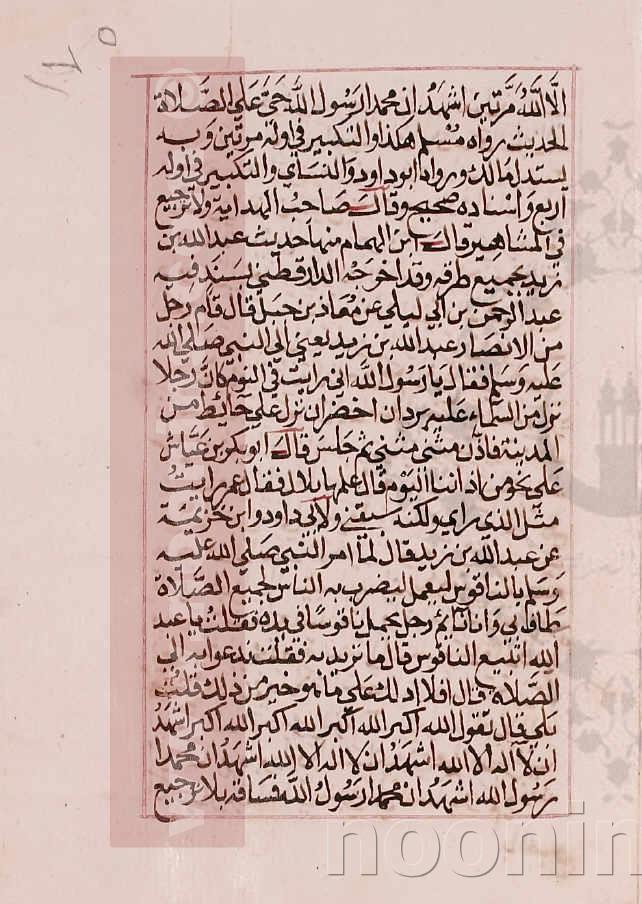 ١٧٥
الا الله مرتين اشهد ان محمد الرسول الله حي على الصلاة
الحديث رواه مسلم هكذا والتكبير في اوله مرتين وبه
يستدل مالك ورواه ابو داود والنساي والتكبير في اوله
اربع واسناده صحيح وقال صاحب الهداية ولا ترجيع
في المشاهير قال ابن الهمام منها حديث عبد الله بن
زيد بجميع طرقه وقد اخرجه الدار قطني بسند فيه
عبد الرحمن بن ابي ليلي عن معاذ بن جبل قال قام رجل
من الانصار عبد الله بن زيد يعني الى النبي صلي الله
عليه وسلم فقال يا رسول الله اني رايت في النوم كان رجلا
نزل من السماء عليه بردان اخضران نزل علي حائط من
المدينة فاذن مثني مثني ثم جلس قال ابو بكر بن عياش
علي نحو من اذاننا اليوم قال علمها بلال فقال عمر رايت
مثل الذي راي ولكنه سبقني ولابي داود وابن خزيمة
عن عبد الله بن زيد قال لما امر النبي صلي الله عليه
وسلم بالناقوس ليعمل ليضرب به الناس لجميع الصلاة
طاف بي وانا نائم رجل يحمل ناقوسا في يده فقلت يا عبد
الله اتبيع الناقوس قال ما تريد به فقلت ندعوا به الي
الصلاة قال افلا ادلك علي ما هو خير من ذلك قلت
بلي قال تقول الله اكبر الله اكبر الله اكبر الله اكبر اشهد
ان لا اله الا الله اشهد ان لا اله الا الله اشهد ان محمدا
رسول الله اشهد ان محمدا رسول الله فساقه بلا ترجيع
noonin